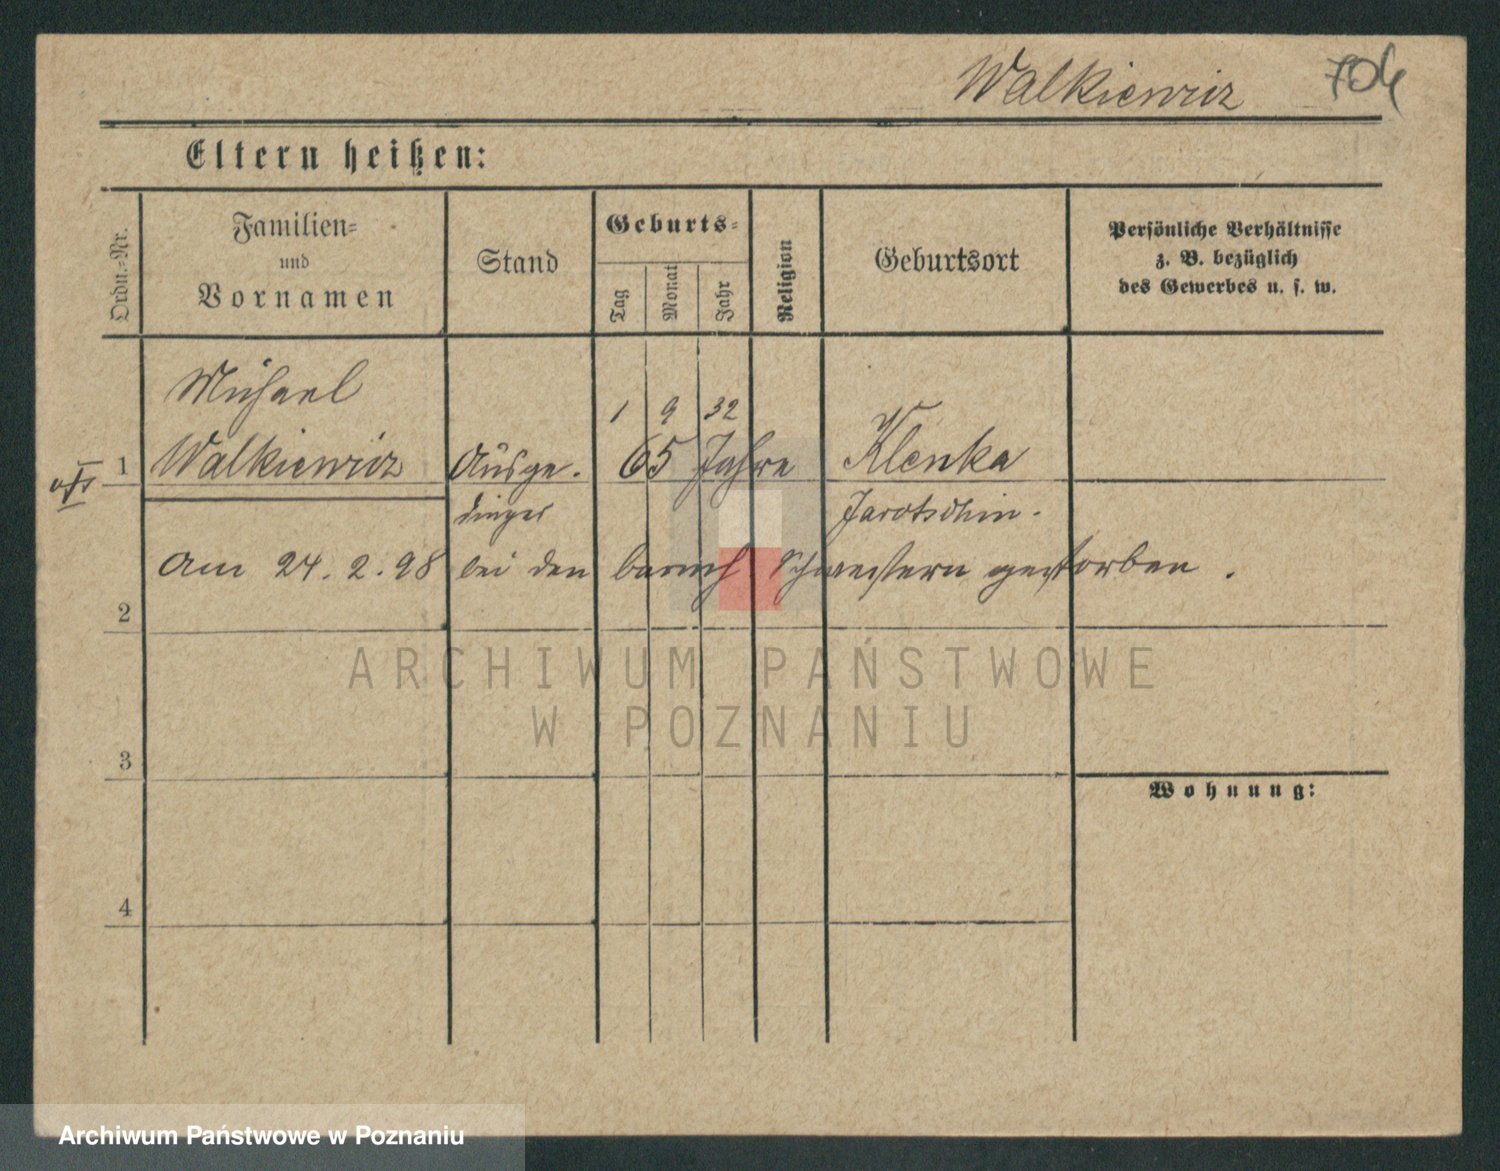 Walkiewicz 704
Eltern heißen:
Ordn.-Nr.
Familien-
und
Vornamen
Stand
Geburts-
Tag
Monat
Jahr
Religion
Geburtsort
Persönliche Verhältnisse
z. B. bezüglich
des Gewerbes u. s. w.
Michael
1 9 32
1 Walkiewicz Ausge- 65 Jahre Klenka
dinger Jarotschin.
Am 24. 2. 98 bei den barmh. Schwestern gestorben.
2
ARCHIWUM PAŃSTWOWE
W POZNANIU
3
Wohnung:
4
Archiwum Państwowe w Poznaniu